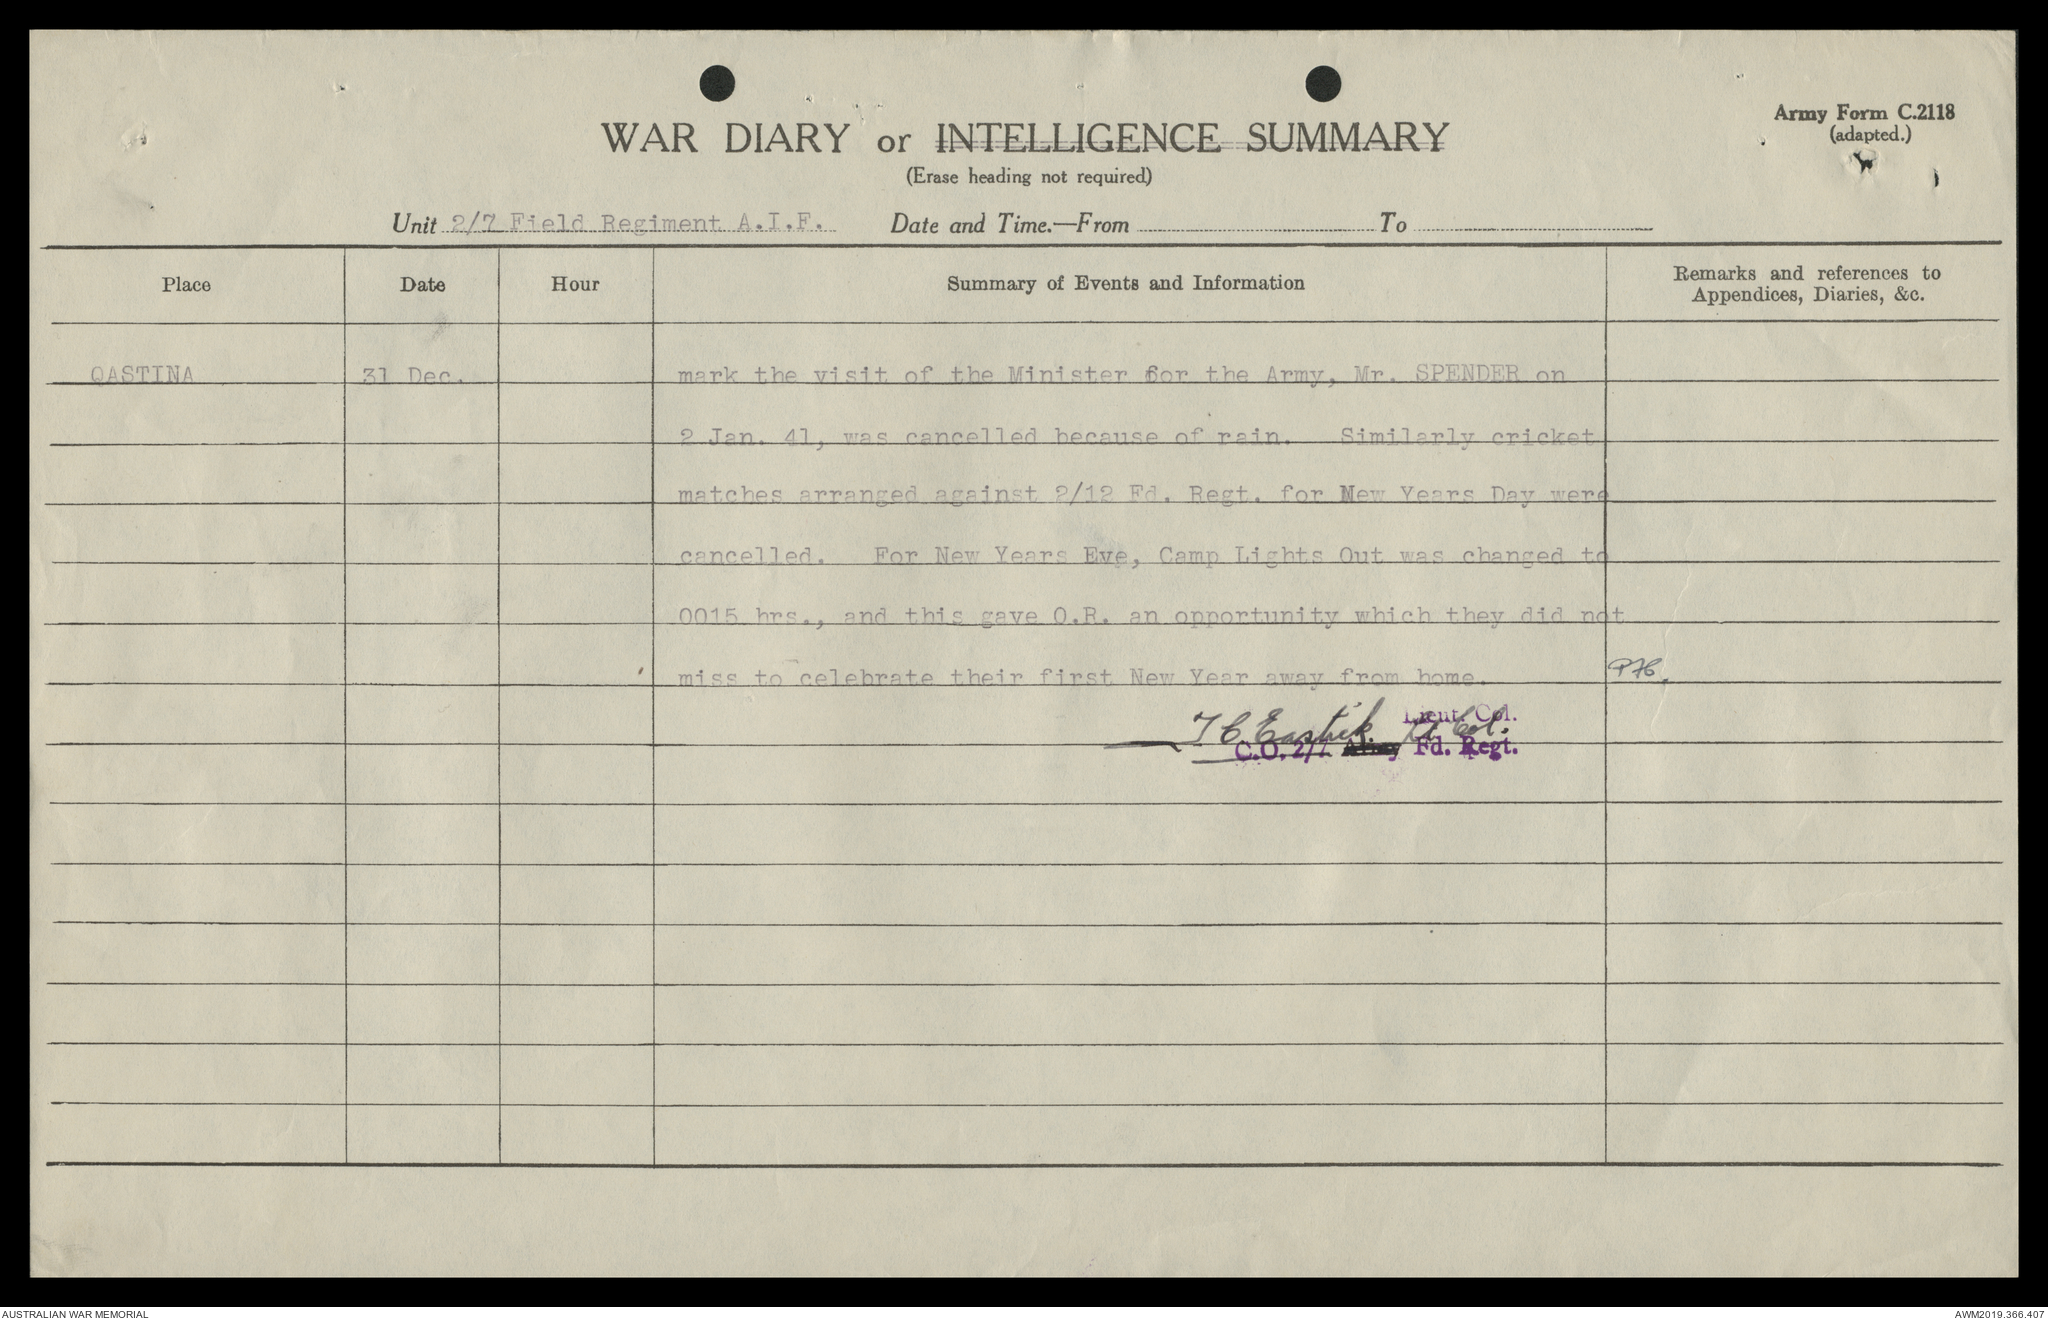 Army Form C.2118
(adapted.)
WAR DIARY or INTELLIGENCE SUMMARY
(Erase heading not required)
Unit 2/7 Field Regiment A.I.F. Date and Time.—From To
Place Date Hour Summary of Events and Information Remarks and references to
Appendices, Diaries, &c.
QASTINA 31 Dec. mark the visit of the Minister for the Army, Mr. SPENDER on
2 Jan. 41, was cancelled because of rain. Similarly cricket
matches arranged against 2/12 Fd. Regt. for New Years Day were
cancelled. For New Years Eve, Camp Lights Out was changed to
0015 hrs., and this gave O.R. an opportunity which they did not
miss to celebrate their first New Year away from home.
T C Eastick Lt Col.
Lieut. Col.
C.O. 2/7 Army Fd. Regt.
AUSTRALIAN WAR MEMORIAL AWM2019.366.407